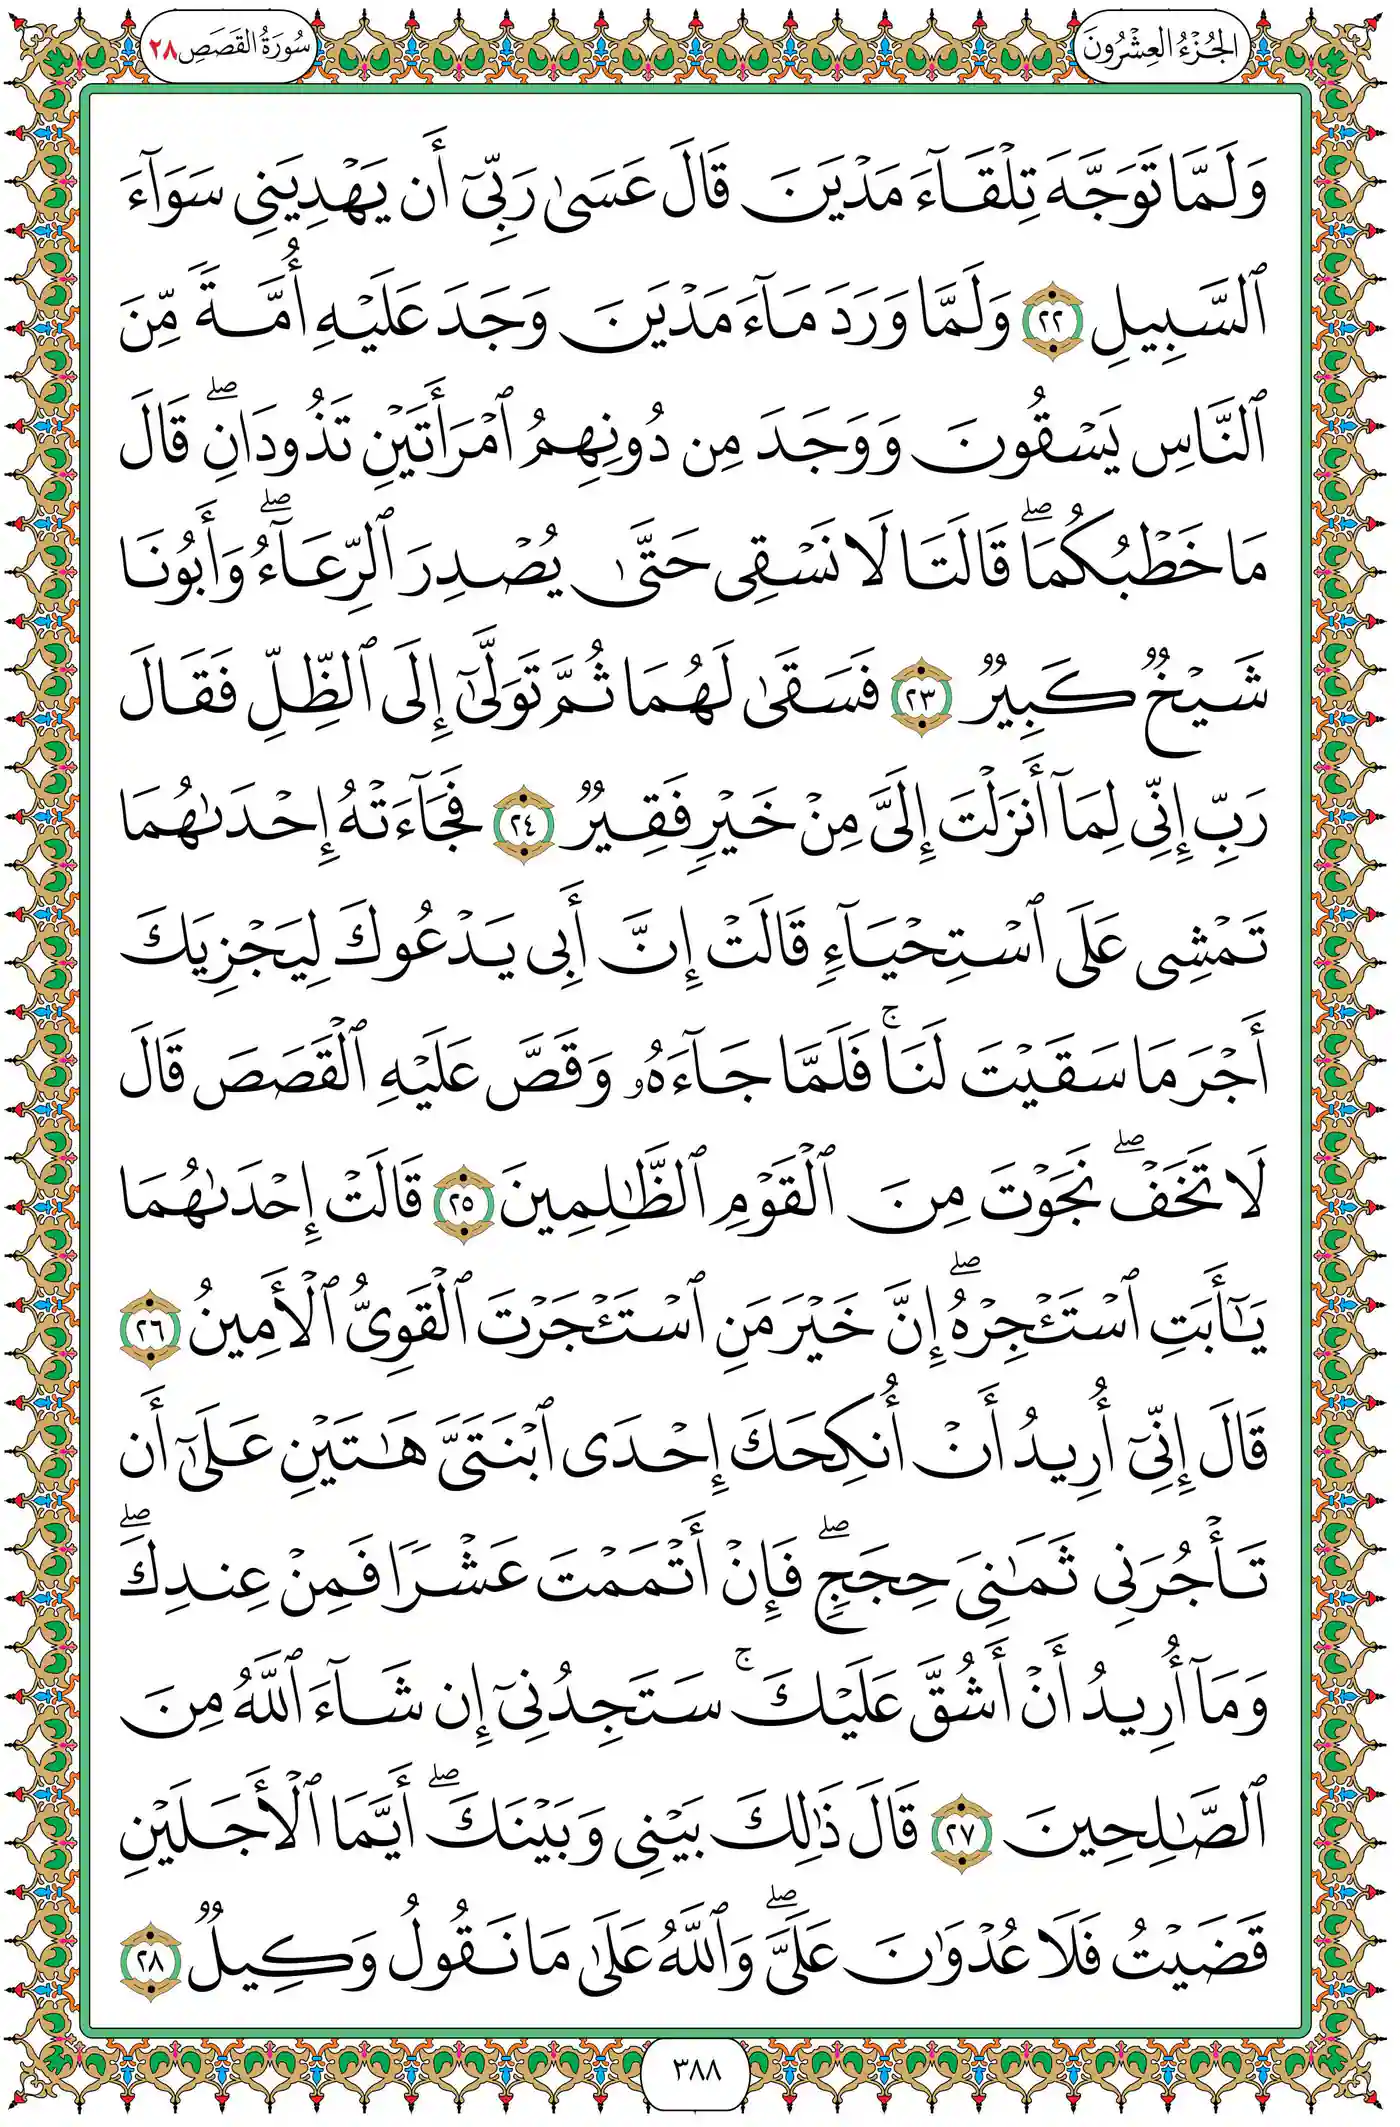 الجُزْءُ العِشْرُونَ
سُورَةُ القَصَصِ ٢٨
وَلَمَّا تَوَجَّهَ تِلْقَآءَ مَدْيَنَ قَالَ عَسَىٰ رَبِّىٓ أَن يَهْدِيَنِى سَوَآءَ
ٱلسَّبِيلِ ٢٢ وَلَمَّا وَرَدَ مَآءَ مَدْيَنَ وَجَدَ عَلَيْهِ أُمَّةً مِّنَ
ٱلنَّاسِ يَسْقُونَ وَوَجَدَ مِن دُونِهِمُ ٱمْرَأَتَيْنِ تَذُودَانِۖ قَالَ
مَا خَطْبُكُمَاۖ قَالَتَا لَا نَسْقِى حَتَّىٰ يُصْدِرَ ٱلرِّعَآءُۖ وَأَبُونَا
شَيْخٌ كَبِيرٌ ٢٣ فَسَقَىٰ لَهُمَا ثُمَّ تَوَلَّىٰٓ إِلَى ٱلظِّلِّ فَقَالَ
رَبِّ إِنِّى لِمَآ أَنزَلْتَ إِلَىَّ مِنْ خَيْرٍ فَقِيرٌ ٢٤ فَجَآءَتْهُ إِحْدَىٰهُمَا
تَمْشِى عَلَى ٱسْتِحْيَآءٍ قَالَتْ إِنَّ أَبِى يَدْعُوكَ لِيَجْزِيَكَ
أَجْرَ مَا سَقَيْتَ لَنَاۚ فَلَمَّا جَآءَهُۥ وَقَصَّ عَلَيْهِ ٱلْقَصَصَ قَالَ
لَا تَخَفْۖ نَجَوْتَ مِنَ ٱلْقَوْمِ ٱلظَّٰلِمِينَ ٢٥ قَالَتْ إِحْدَىٰهُمَا
يَٰٓأَبَتِ ٱسْتَـْٔجِرْهُۖ إِنَّ خَيْرَ مَنِ ٱسْتَـْٔجَرْتَ ٱلْقَوِىُّ ٱلْأَمِينُ ٢٦
قَالَ إِنِّىٓ أُرِيدُ أَنْ أُنكِحَكَ إِحْدَى ٱبْنَتَىَّ هَٰتَيْنِ عَلَىٰٓ أَن
تَأْجُرَنِى ثَمَٰنِىَ حِجَجٍۖ فَإِنْ أَتْمَمْتَ عَشْرًا فَمِنْ عِندِكَۖ
وَمَآ أُرِيدُ أَنْ أَشُقَّ عَلَيْكَۚ سَتَجِدُنِىٓ إِن شَآءَ ٱللَّهُ مِنَ
ٱلصَّٰلِحِينَ ٢٧ قَالَ ذَٰلِكَ بَيْنِى وَبَيْنَكَۖ أَيَّمَا ٱلْأَجَلَيْنِ
قَضَيْتُ فَلَا عُدْوَٰنَ عَلَىَّۖ وَٱللَّهُ عَلَىٰ مَا نَقُولُ وَكِيلٌ ٢٨
٣٨٨